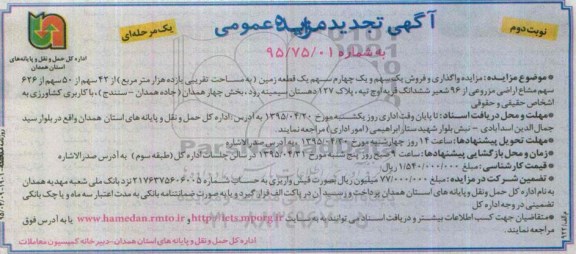 آگهی تجدید مزایده عمومی
یک مرحله‌ای
نوبت دوم
به شماره ۹۵/۷۵/۰۱
اداره کل حمل و نقل و پایانه‌های
استان همدان
• موضوع مزایده: مزایده واگذاری و فروش یک سهم و یک چهارم سهم یک قطعه زمین (به مساحت تقریبی یازده هزار متر مربع) از ۴۲ سهم از ۵۰ سهم از ۶۲۶
سهم مشاع اراضی مزروعی از ۹۶ شعیر ششدانگ قریه اوچ تپه، پلاک ۱۲۷ دهستان سیمینه رود، بخش چهار همدان (جاده همدان - سنندج)، با کاربری کشاورزی به
اشخاص حقیقی و حقوقی
• مهلت و محل دریافت اسناد: تا پایان وقت اداری روز یکشنبه مورخ ۱۳۹۵/۰۴/۲۰ به آدرس: اداره کل حمل و نقل و پایانه های استان همدان واقع در بلوار سید
جمال الدین اسدآبادی - نبش بلوار شهید ستار ابراهیمی (امور اداری) مراجعه نمایند.
• مهلت تحویل پیشنهادها: ساعت ۱۴ روز چهارشنبه مورخ به آدرس صدرالاشاره
• زمان و محل بازگشایی پیشنهادها: ساعت ۹ صبح روز پنج شنبه مورخ ۱۳۹۵/۰۴/۳۱ سالن جلسات اداره کل (طبقه سوم) به آدرس صدرالاشاره
• قیمت کارشناسی: مبلغ ۱/۵۴۰/۰۰۰/۰۰۰ ریال
• تضمین شرکت در مزایده: مبلغ ۷۷/۰۰۰/۰۰۰ میلیون ریال بصورت فیش واریزی به حساب شماره ۲۱۷۶۳۷۵۶۰۶۰۰۵ نزد بانک ملی شعبه مهدیه همدان
به نام اداره کل حمل و نقل و پایانه های استان همدان پرداخت و رسید آن در پاکت الف قرار گیرد و یا به صورت ضمانتنامه بانکی به مدت اعتبار سه ماه و یا چک بانکی
تضمینی در وجه اداره کل
• متقاضیان جهت کسب اطلاعات بیشتر و دریافت اسناد می توانند به سایت http://iets.mporg.ir و یا www.hamedan.rmto.ir یا به آدرس فوق
مراجعه نمایند.
اداره کل حمل و نقل و پایانه های استان همدان - دبیرخانه کمیسیون معاملات